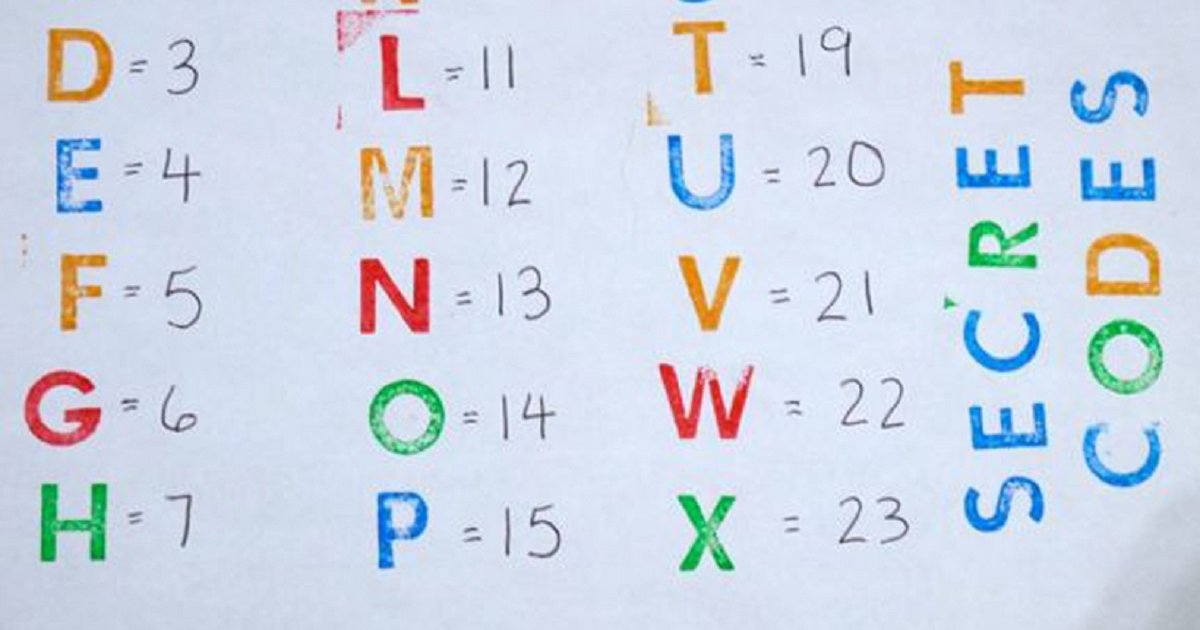 D = 3
E = 4
F = 5
G = 6
H = 7
L = 11
M = 12
N = 13
O = 14
P = 15
T = 19
U = 20
V = 21
W = 22
X = 23
SECRET
CODES